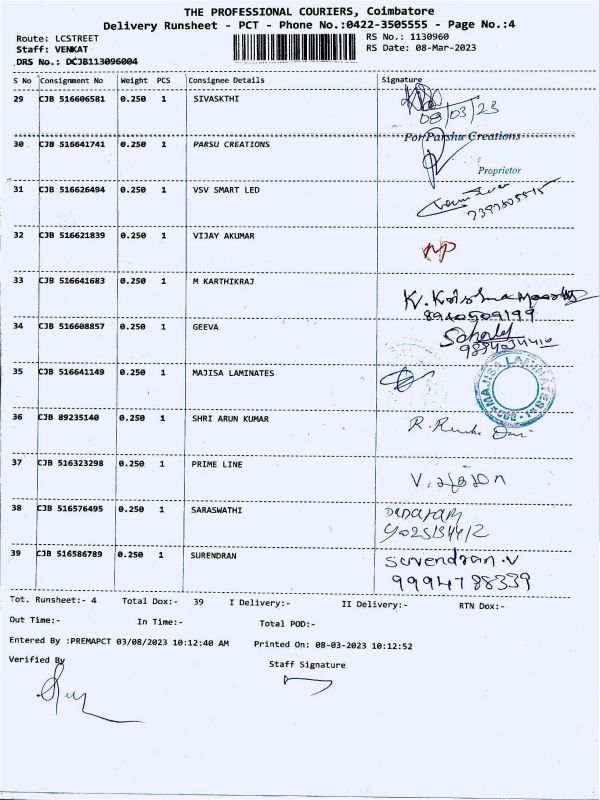 THE PROFESSIONAL COURIERS, Coimbatore
Delivery Runsheet - PCT - Phone No.:0422-3505555 - Page No.:4
Route: LCSTREET RS No.: 1130960
Staff: VENKAT RS Date: 08-Mar-2023
DRS No.: DCJB113096004
S No Consignment No Weight PCS Consignee Details Signature
29 CJB 516606581 0.250 1 SIVASKTHI
08/03/23
30 CJB 516641741 0.250 1 PARSU CREATIONS For Parshu Creations
Proprietor
31 CJB 516626494 0.250 1 VSV SMART LED
32 CJB 516621839 0.250 1 VIJAY AKUMAR
33 CJB 516641683 0.250 1 M KARTHIKRAJ
8940509199
34 CJB 516608857 0.250 1 GEEVA
35 CJB 516641149 0.250 1 MAJISA LAMINATES
36 CJB 89235140 0.250 1 SHRI ARUN KUMAR
37 CJB 516323298 0.250 1 PRIME LINE
38 CJB 516576495 0.250 1 SARASWATHI
39 CJB 516586789 0.250 1 SURENDRAN Surendran.V
9994788339
Tot. Runsheet:- 4 Total Dox:- 39 I Delivery:- II Delivery:- RTN Dox:-
Out Time:- In Time:- Total POD:-
Entered By :PREMAPCT 03/08/2023 10:12:40 AM Printed On: 08-03-2023 10:12:52
Verified By Staff Signature